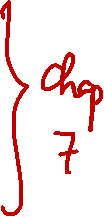 chap
7